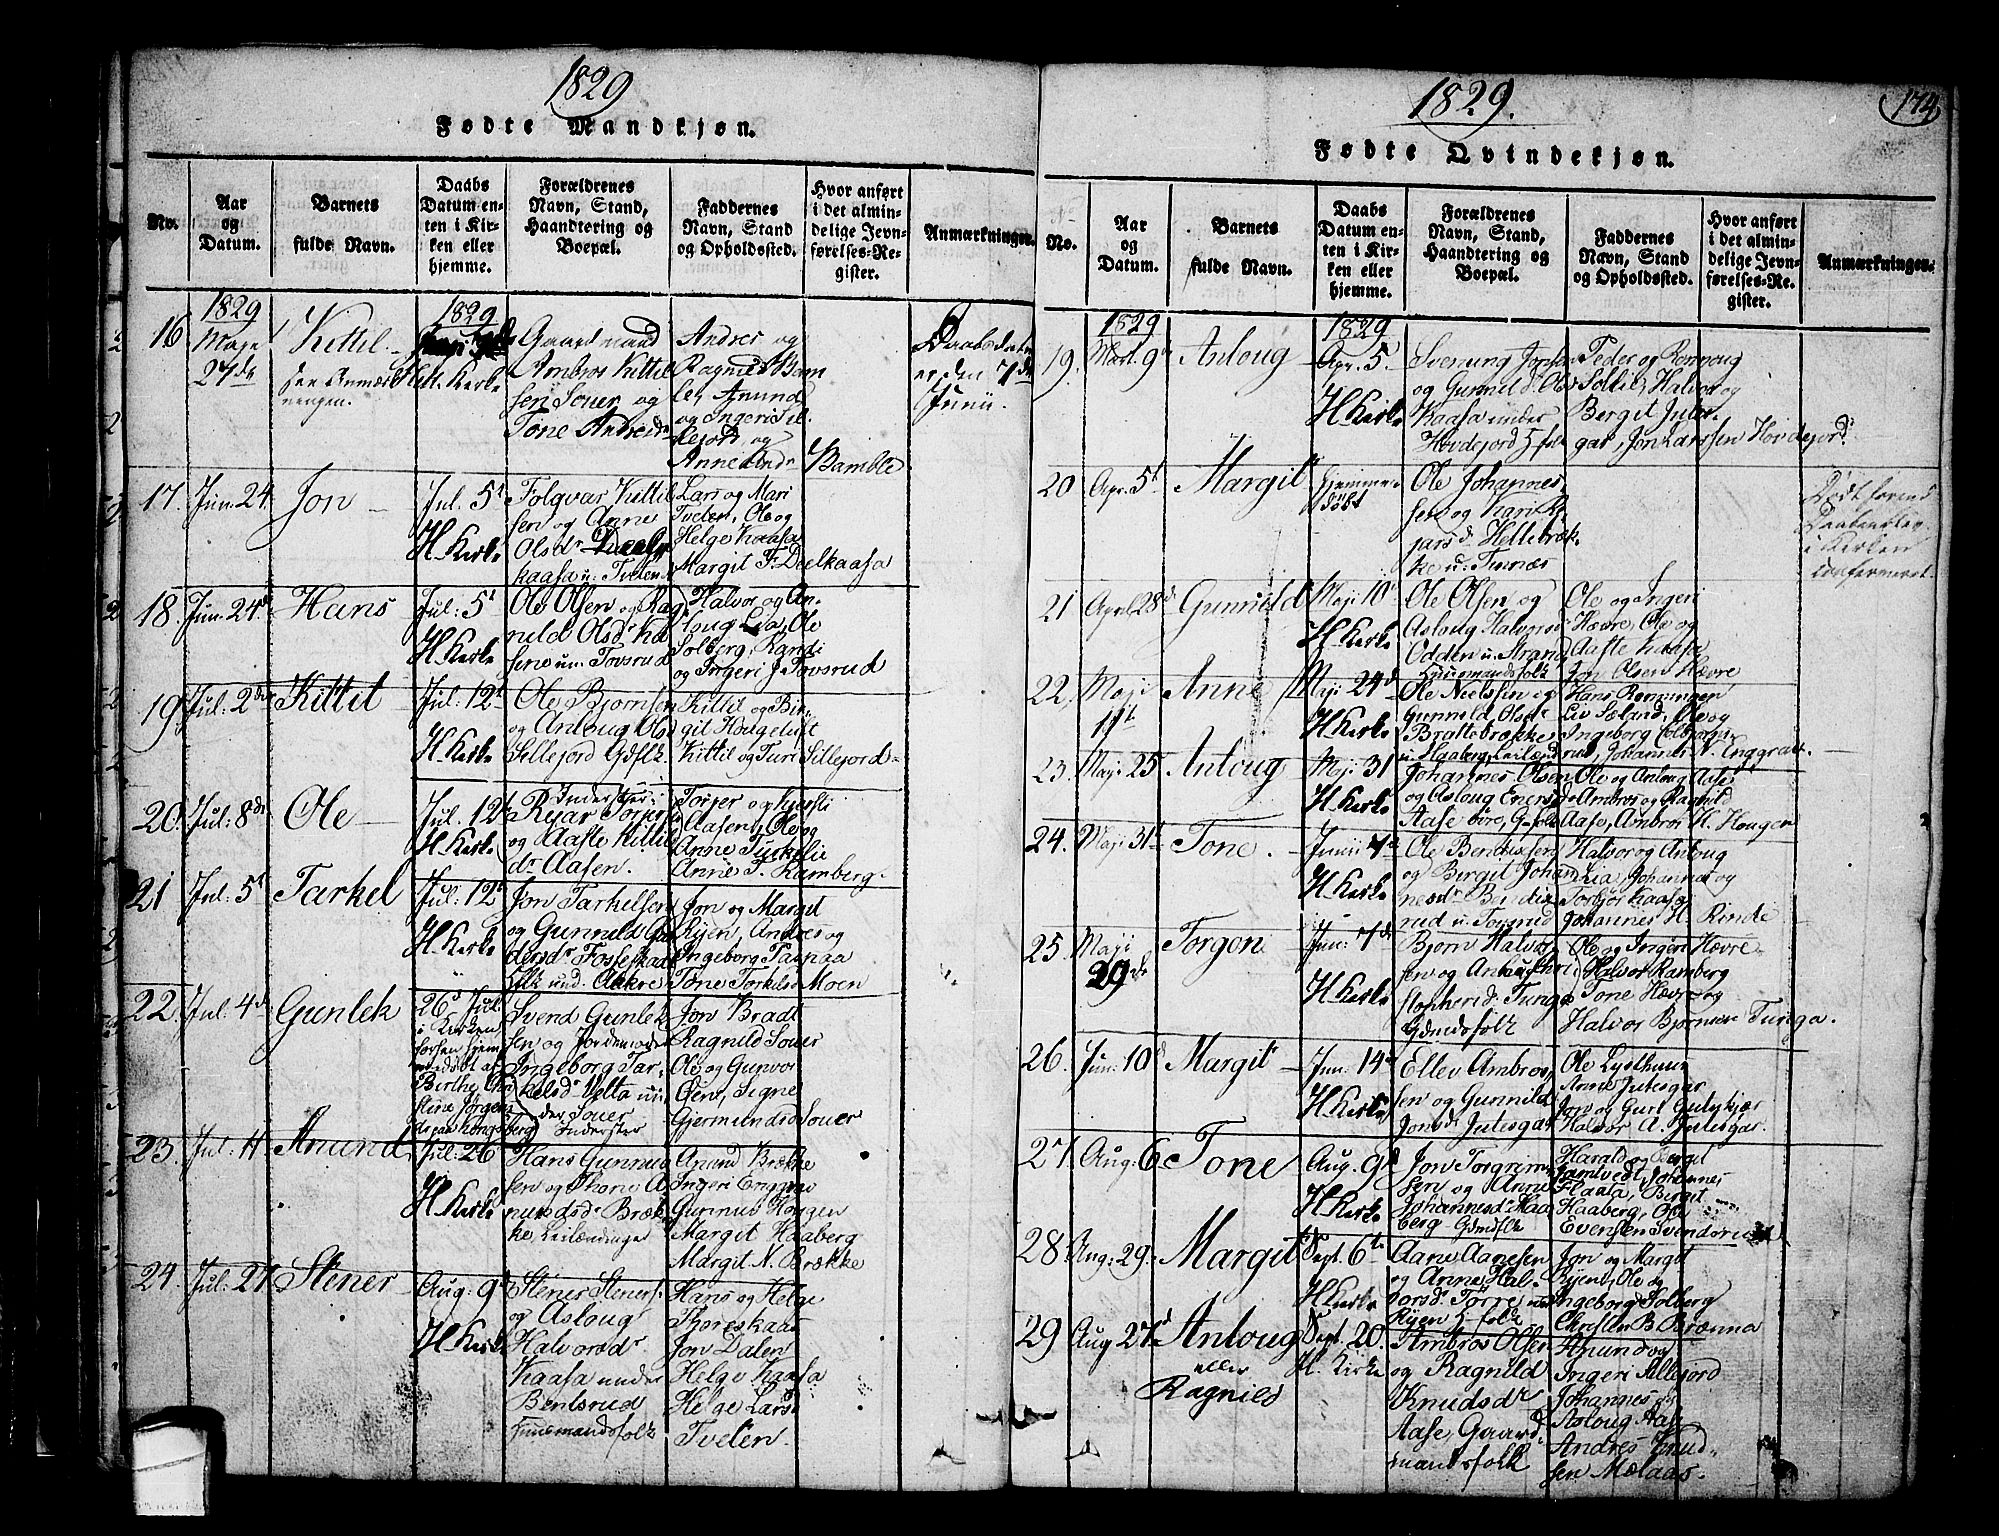 1829
Fødte Mandkjøn.
No.
Aar
og
Datum.
Barnets
fulde Navn.
Daabs
Datum en-
ten i Kir-
ken eller
hjemme.
Forældrenes
Navn, Stand,
Haandtering og
Boepæl.
Faddernes
Navn, Stand
og Opholdssted.
Hvor anført
i det almin-
delige Jevn-
førelses-Re-
gister.
Anmærkninger.
16
1829
Maje
27de
Kittil
see Anmærk
ningen.
1829
H. Kirke
Gaardmand
Ambros Kittil
sen Souer og
Tone Andreidr
Andres og
Ragnild Bam
le, Anund
og Ingeri Sil
lejord, og
Anne Andr Bamble
Daabsdaten
er den 7de
Junii
17.
Jun. 24
Jon
Jul. 5t
H. Kirke
Folqvar Kittil
sen og Anne
Olsdr
kaasa u: Tveten
Lars og Mari
Tveten, Ole og
Helge Kaasa
Margit F. Deelkaasa
18
Jun. 24d
Hans
Jul: 5t
H. Kirke
Ole Olsen og Rag
nild Olsdr Kaa
sene un: Tovsrud
Halvor og An-
loug Lia, Ole
Solberg, Randi
og Ingeri J. Tovsrud
19
Jul: 2de
Kittil
Jul: 12t
H. Kirke
Ole Bjørnsen
og Anloug Ols
Sillejord Gdflk
Kittil og Bir-
git Hougeluft
Kittil og Turi Sillejord
20.
Jul: 8de
Ole
Jul: 12t
H. Kirke
Inderster:
Rejar Torjer
og Aaste Kittils
dr Aasen.
Torjer og Kjersti
Aasen, Ole og
Anne Turkelie
Anne T. Ramberg.
21
Jul: 5t
Tarkel
Jul: 12t
H. Kirke
Jon Tarkelsen
og Gunnild Gun
dersdr Fosseskaas
flk und. Aakre
Jon og Margit
Ryen, Andres og
Ingeborg Tasnaa
Tone Torkilsd Moen
22
Jul: 4de
Gunlek
26d Jul:
i Kirken
forhen hjem
medøbt af
Birthe Chri
stine Jørgens
dr paa Kongsberg
Svend Gunlek
sen og Jordemoder
Ingeborg Tar-
kelsdr Velta un
der Souer
Inderster
Jon Bradt
Ragnild Souer
Ole og Gunvor
Øien, Signe
Gjermundsd Souer
23
Jul: 11
Anund
Jul: 26
H. Kirke
Hans Gunnus
sen og Thone A
nundsdr Bræk
ke, Leilændinger
Anund Brække
Ingeri Enggrav
Gunnus Hougen
Margit Haaberg
Margit N. Brække
24.
Jul: 27
Stener
Aug: 9d
H. Kirke
Stener Steners
og Asloug
Halvorsdr
Kaasa under
Bentsrud
Huusmandsfolk
Hans og Helge
Tjoreskaas
Jon Dalen
Helge Kaasa
Helge Lars
Tveten.
1829.
174
Fødte Qvindekjøn.
No.
Aar
og
Datum.
Barnets
fulde Navn.
Daabs
Datum en-
ten i Kir-
ken eller
hjemme.
Forældrenes
Navn, Stand,
Haandtering og
Boepæl.
Faddernes
Navn, Stand
og Opholdssted.
Hvor anført
i det almin-
delige Jevn-
førelses-Re-
gister.
Anmærkninger.
19.
1829
Mart 9de
Anloug
1829
Apr. 5t
H. Kirke
Svenung Jonsen
og Gunnild Olsd
Kaasa under
Hovdejord
Peder og Ronnoug
Sollie, Halvor og
Bergit Jutes
gar, Jon Larssen Hovdejord
20
Apr. 5t
Margit
Hjemme
døbt
Ole Johannes
sen og Kari R
jarsd. Hellebræk
ke u. Tinnæs
Død forend
Daaben blev
i Kirken
confermeret.
21
April 28d
Gunnild
Maji 10d
H. Kirke
Ole Olsen og
Asloug Halvorsd
Odden u. Strand
Huusmandsfolk
Ole og Ingeri
Hævre, Ole og
Aaste Kaasa
Jon Olsen Hævre
22.
Maji
11t
Anne
Maji 24d
H. Kirke
Ole Nielssen og
Gunnild Olsdr
Brattebrække
u. Haaberg, Leilænd
Hans Ronningen
Liv Sæland, Ole og
Ingeborg Olborgs
rud, Johannes N. Enggrav
23.
Maji 25
Anloug
Maji 31
H. Kirke
Johannes Olsen
og Asloug Enersd
Aase øvre, G-folk
Ole og Anloug Aase
Ambros og Ragnild
Aase, Ambros K. Hougen
24.
Maji 31t
Tone
Junii 7de
H. Kirke
Ole Bendixsen
og Birgit Johan
nesdr Bendix
rud u. Tovsrud
Halvor og Anloug
Lia, Johannes og
Torbjør Kaasa
Johannes H. Rinde
25
Maji
29de
Torgon
Jun: 7de
H. Kirke
Bjørn Halvor
sen og Anlau Chri
stophersd. Tunga
Gdmdsfolk
Ole og Ingeri Hævre
Halvor Ramberg
Tone Hævre og
Halvor Bjørnsen Tunga.
26.
Jun: 10d
Margit
Jun: 14de
H. Kirke
Ellev Ambros
sen og Gunnild
Jonsdr Jutesgar
Ole Lysthuus
Anne Jutesgar
Jon og Guri Gutukjær
Halvor A. Jutesgar.
27.
Aug: 6
Tone
Aug. 9d
H. Kirke
Jon Torgrim
sen og Anne
Johannesdr Haa
berg Gdmdsfolk
Harald og Bergit
Johannes
Flaata, Birgit
Haaberg, Ole
Evensen Svendsrud
28
Aug: 29.
Margit
Sept. 6te
H. Kirke
Aane Aanesen
og Anne Hal-
vorsdr Torre und
Ryen folk
Jon og Margit
Ryen, Ole og
Ingeborg Solberg
Christen B. Brænna
29
Aug 27d
Anloug
eller
Ragnild
Sept. 20.
H. Kirke
Ambros Olsen
og Ragnild
Knudsdr
Aase, Gaard-
mandsfolk
Anund og
Ingeri Sillejord
Johannes og
Asloug Aase
Andres Knud-
sen Mælaas.